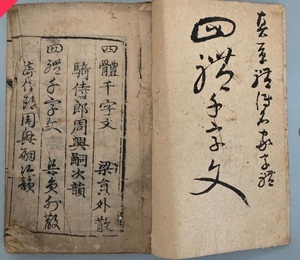 四體千字文
四體千字文 梁員外散
騎侍郎周興嗣次韻
四體千字文 梁員外散
騎侍郎周興嗣次韻